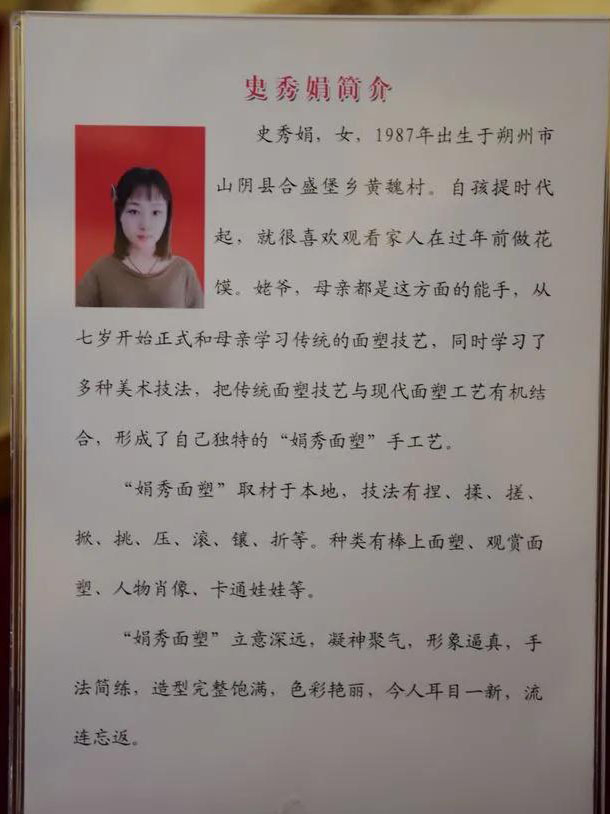 史秀娟简介
史秀娟，女，1987年出生于朔州市
山阴县合盛堡乡黄魏村。自孩提时代
起，就很喜欢观看家人在过年前做花
馍。姥爷，母亲都是这方面的能手，从
七岁开始正式和母亲学习传统的面塑技艺，同时学习了
多种美术技法，把传统面塑技艺与现代面塑工艺有机结
合，形成了自己独特的“娟秀面塑”手工艺。
“娟秀面塑”取材于本地，技法有捏、揉、搓、
掀、挑、压、滚、镶、折等。种类有棒上面塑、观赏面
塑、人物肖像、卡通娃娃等。
“娟秀面塑”立意深远，凝神聚气，形象逼真，手
法简练，造型完整饱满，色彩艳丽，今人耳目一新，流
连忘返。